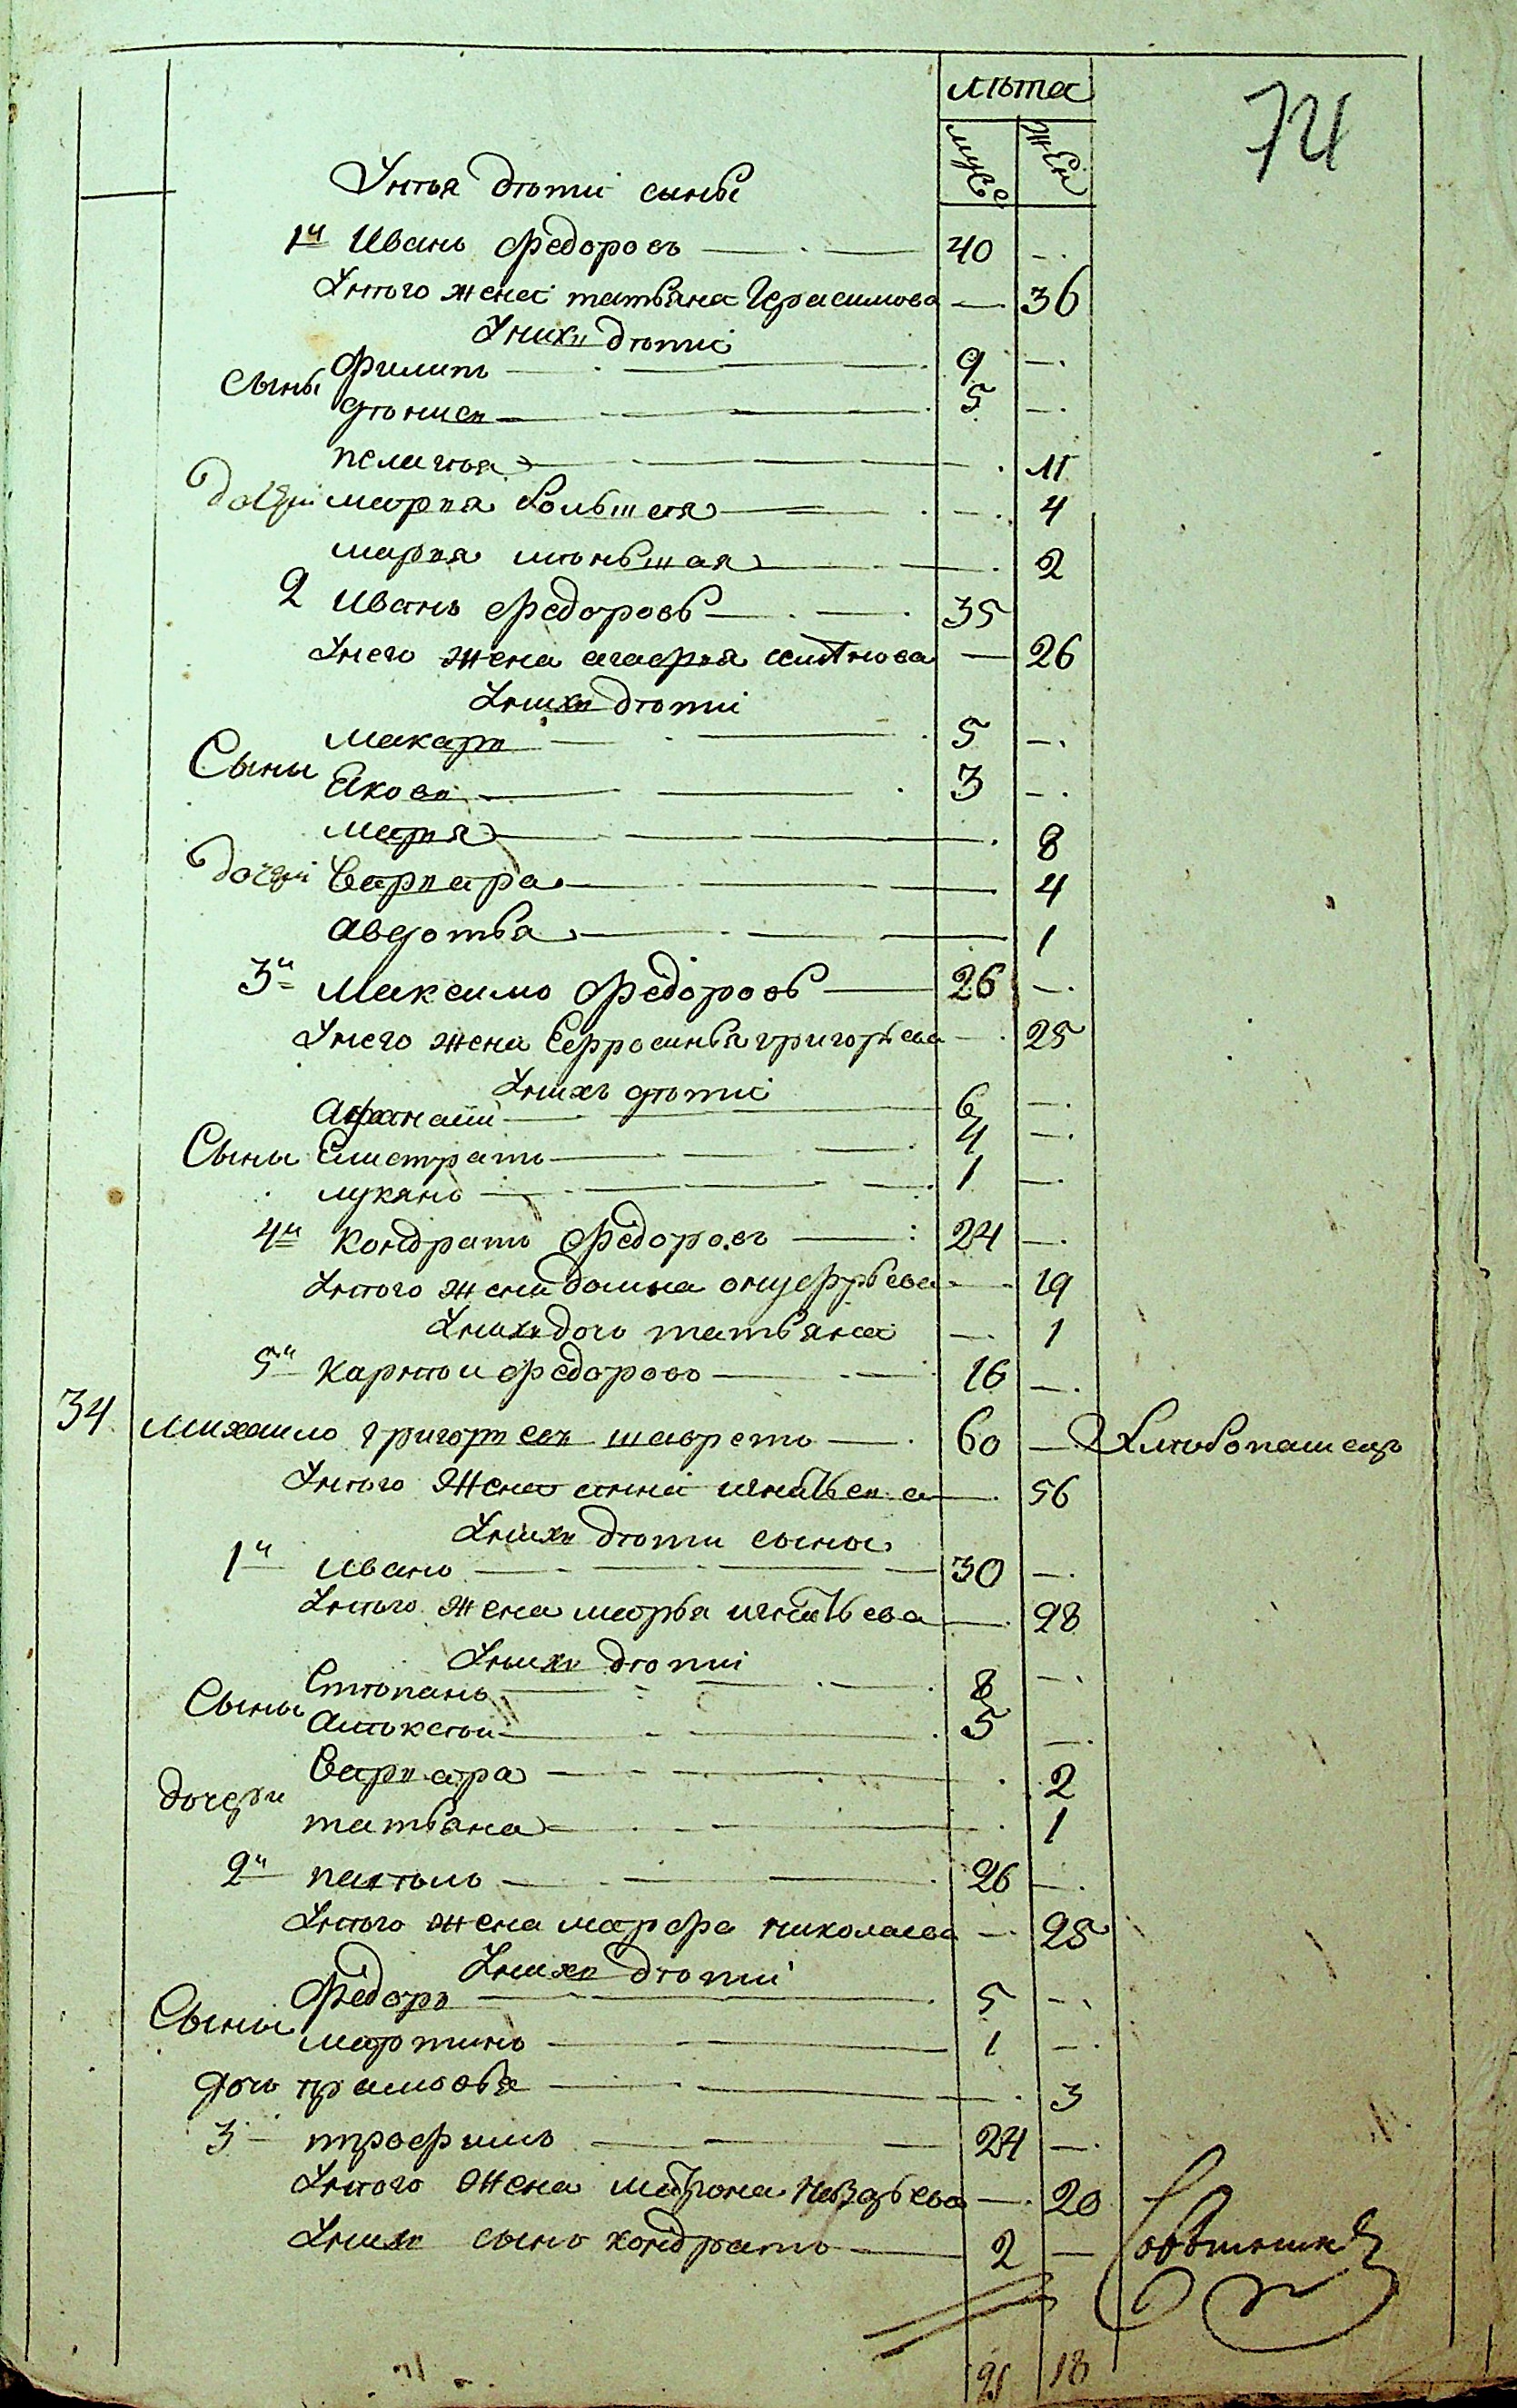 лѣта
муск жен
74
У нея дѣти сыны
1й Иванъ Федоровъ 40 —
У него жена татьяна Герасимова — 36
У нихъ дѣти
Сыны Филипъ 9 —
денисъ 5 —
пелагея 11
дочери марья большая — 4
марья меньшая 2
2 Иванъ Федоровъ 35
У него жена агафья — 26
У нихъ дѣти
Сыны макаръ 5 —
Яковъ 3 —
марья 8
дочери варвара 4
авдотья 1
3й Максимъ Федоровъ 26 —
У него жена Ефросинья григорьева — 25
У нихъ дѣти
Афанасий 6 —
Сыны Елистратъ 4 —
лукянъ 1 —
4й Кондратъ Федоровъ 24 —
У него жена домна онуфрьева — 19
У нихъ дочь татьяна — 1
5й Карнѣй Федоровъ 16 —
34 Михаило григорьевъ шавретъ 60 — Хлѣбопашецъ
У него Жена анна игнатьева — 56
У нихъ дѣти сыны
1й Иванъ 30 —
У него жена марья игнатьева — 28
У нихъ дѣти —
Сыны Степанъ 8
Алексѣй 5 —
дочери Варвара 2
татьяна 1
2й павелъ 26 —
У него жена марфа николаева — 25
У нихъ дѣти
Сыны Федоръ 5 —
мартинъ 1 —
дочь 3
3 трофимъ 24 —
У него Жена матрона — 20
У нихъ сынъ кондратъ 2 —
21 18